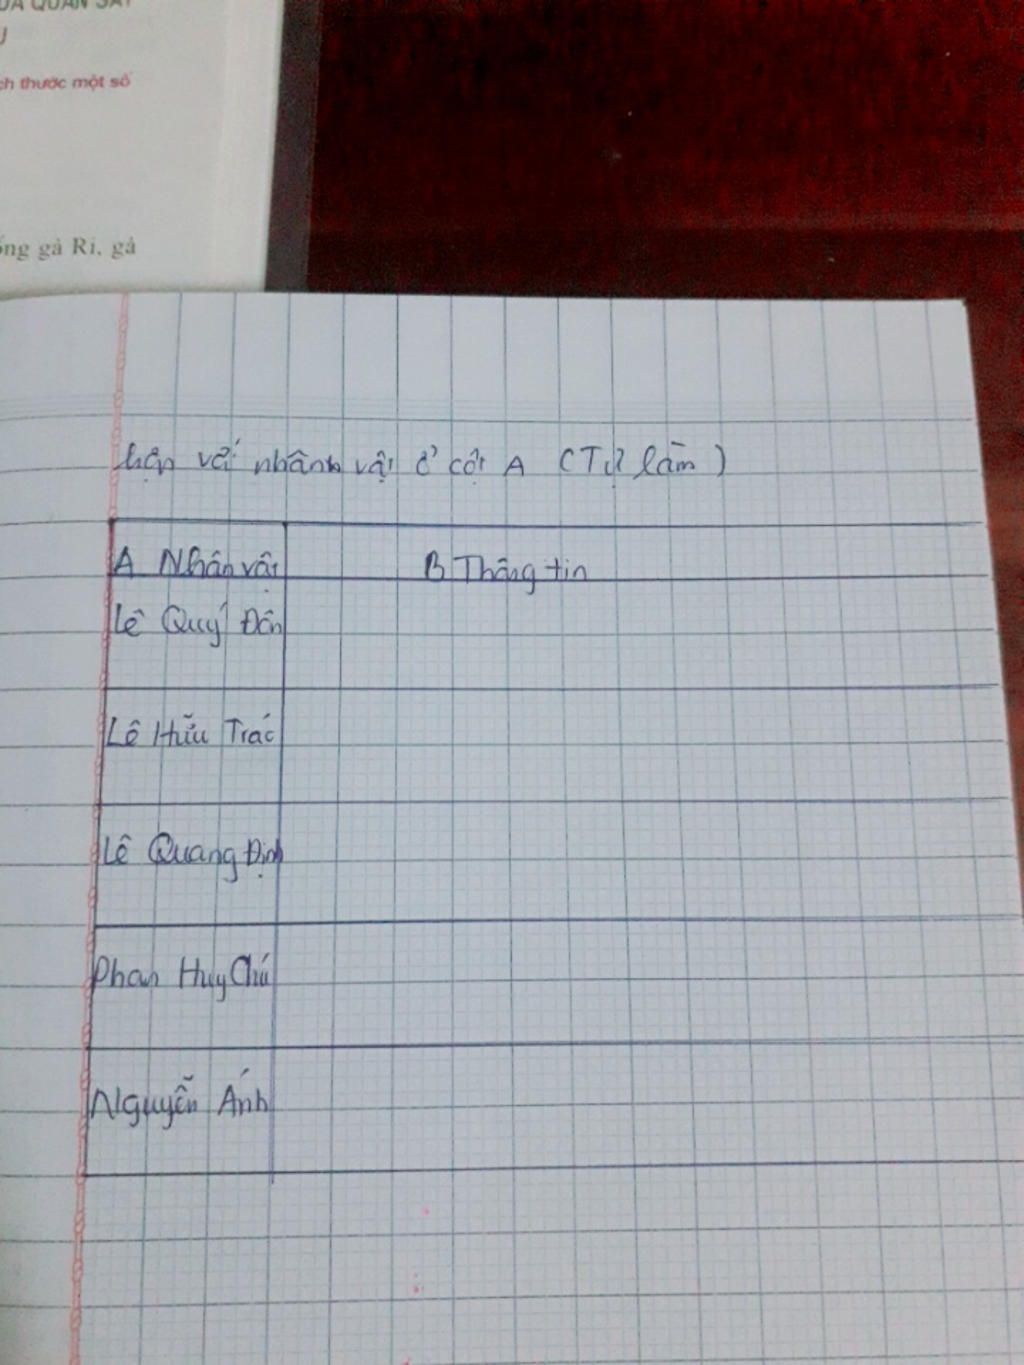 U
ch thước một số
ống gà Ri, gà
hợp với nhânh vật ở cột A (Tự làm)
A Nhân vật B Thông tin
Lê Quý Đôn
Lê Hữu Trác
Lê Quang Định
Phan Huy Chú
Nguyễn Ánh